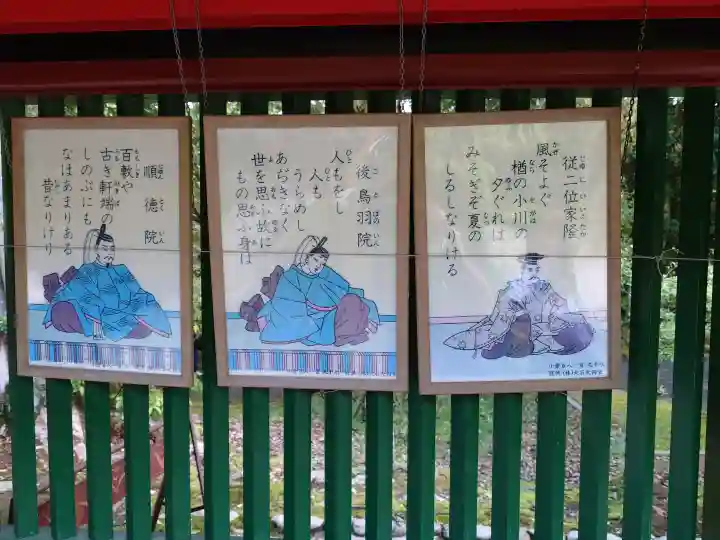 従二位家隆
風そよぐ
楢の小川の
夕ぐれは
みそぎぞ夏の
しるしなりける
後鳥羽院
人もをし
人も
うらめし
あぢきなく
世を思ふ故に
もの思ふ身は
順徳院
百敷や
古き軒端の
しのぶにも
なほあまりある
昔なりけり